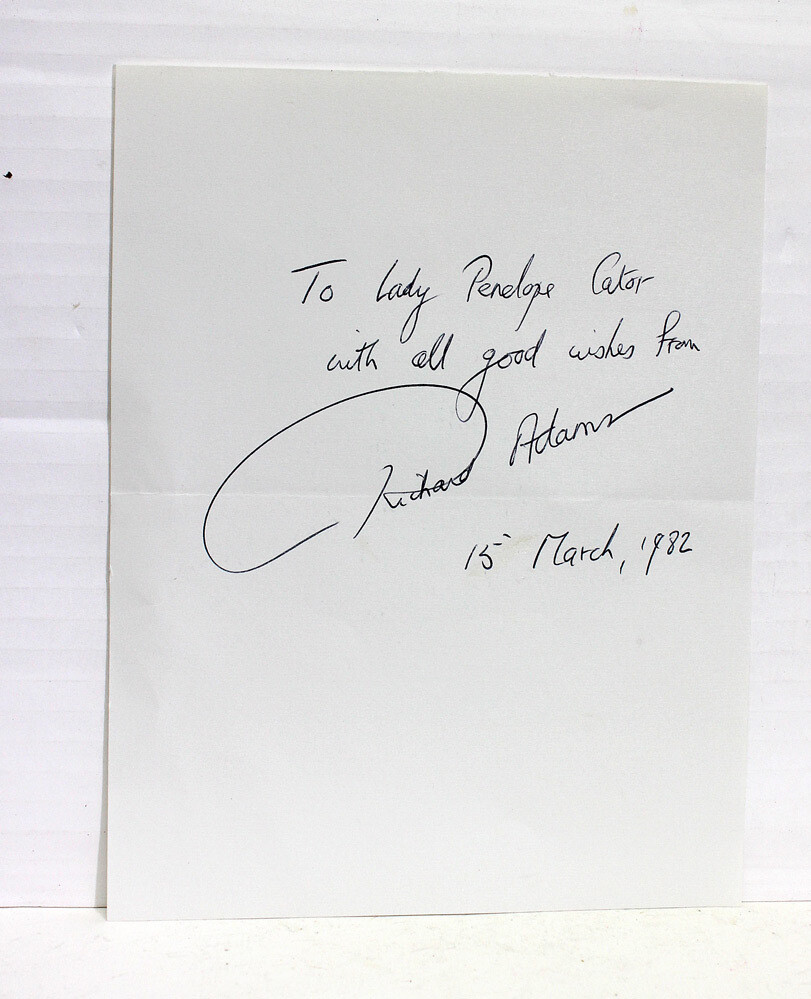 To Lady Penelope Cator
with all good wishes from
Richard Adams
15 March, 1982